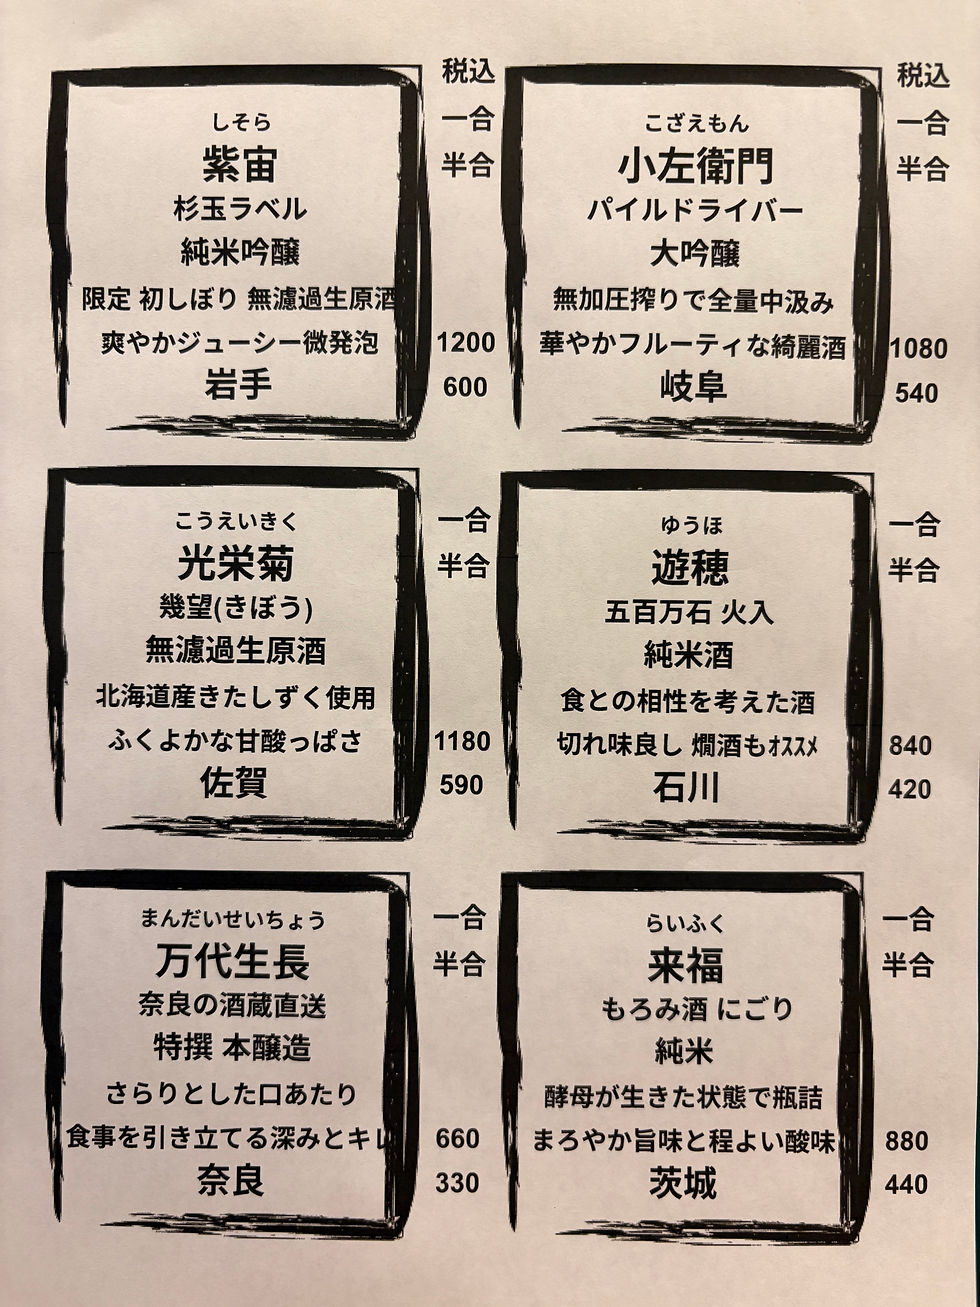 税込
しそら
一合
紫宙
半合
杉玉ラベル
純米吟醸
限定 初しぼり 無濾過生原酒
爽やかジューシー微発泡
1200
岩手
600
税込
こざえもん
一合
小左衛門
半合
パイルドライバー
大吟醸
無加圧搾りで全量中汲み
華やかフルーティな綺麗酒
1080
岐阜
540
こうえいきく
一合
光栄菊
半合
幾望(きぼう)
無濾過生原酒
北海道産きたしずく使用
ふくよかな甘酸っぱさ
1180
佐賀
590
ゆうほ
一合
遊穂
半合
五百万石 火入
純米酒
食との相性を考えた酒
切れ味良し 燗酒もｵｽｽﾒ
840
石川
420
まんだいせいちょう
一合
万代生長
半合
奈良の酒蔵直送
特撰 本醸造
さらりとした口あたり
食事を引き立てる深みとキレ
660
奈良
330
らいふく
一合
来福
半合
もろみ酒 にごり
純米
酵母が生きた状態で瓶詰
まろやか旨味と程よい酸味
880
茨城
440